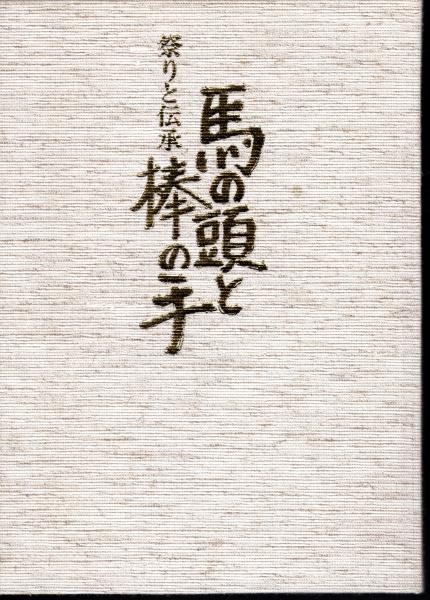 馬の頭と
棒の手
祭りと伝承